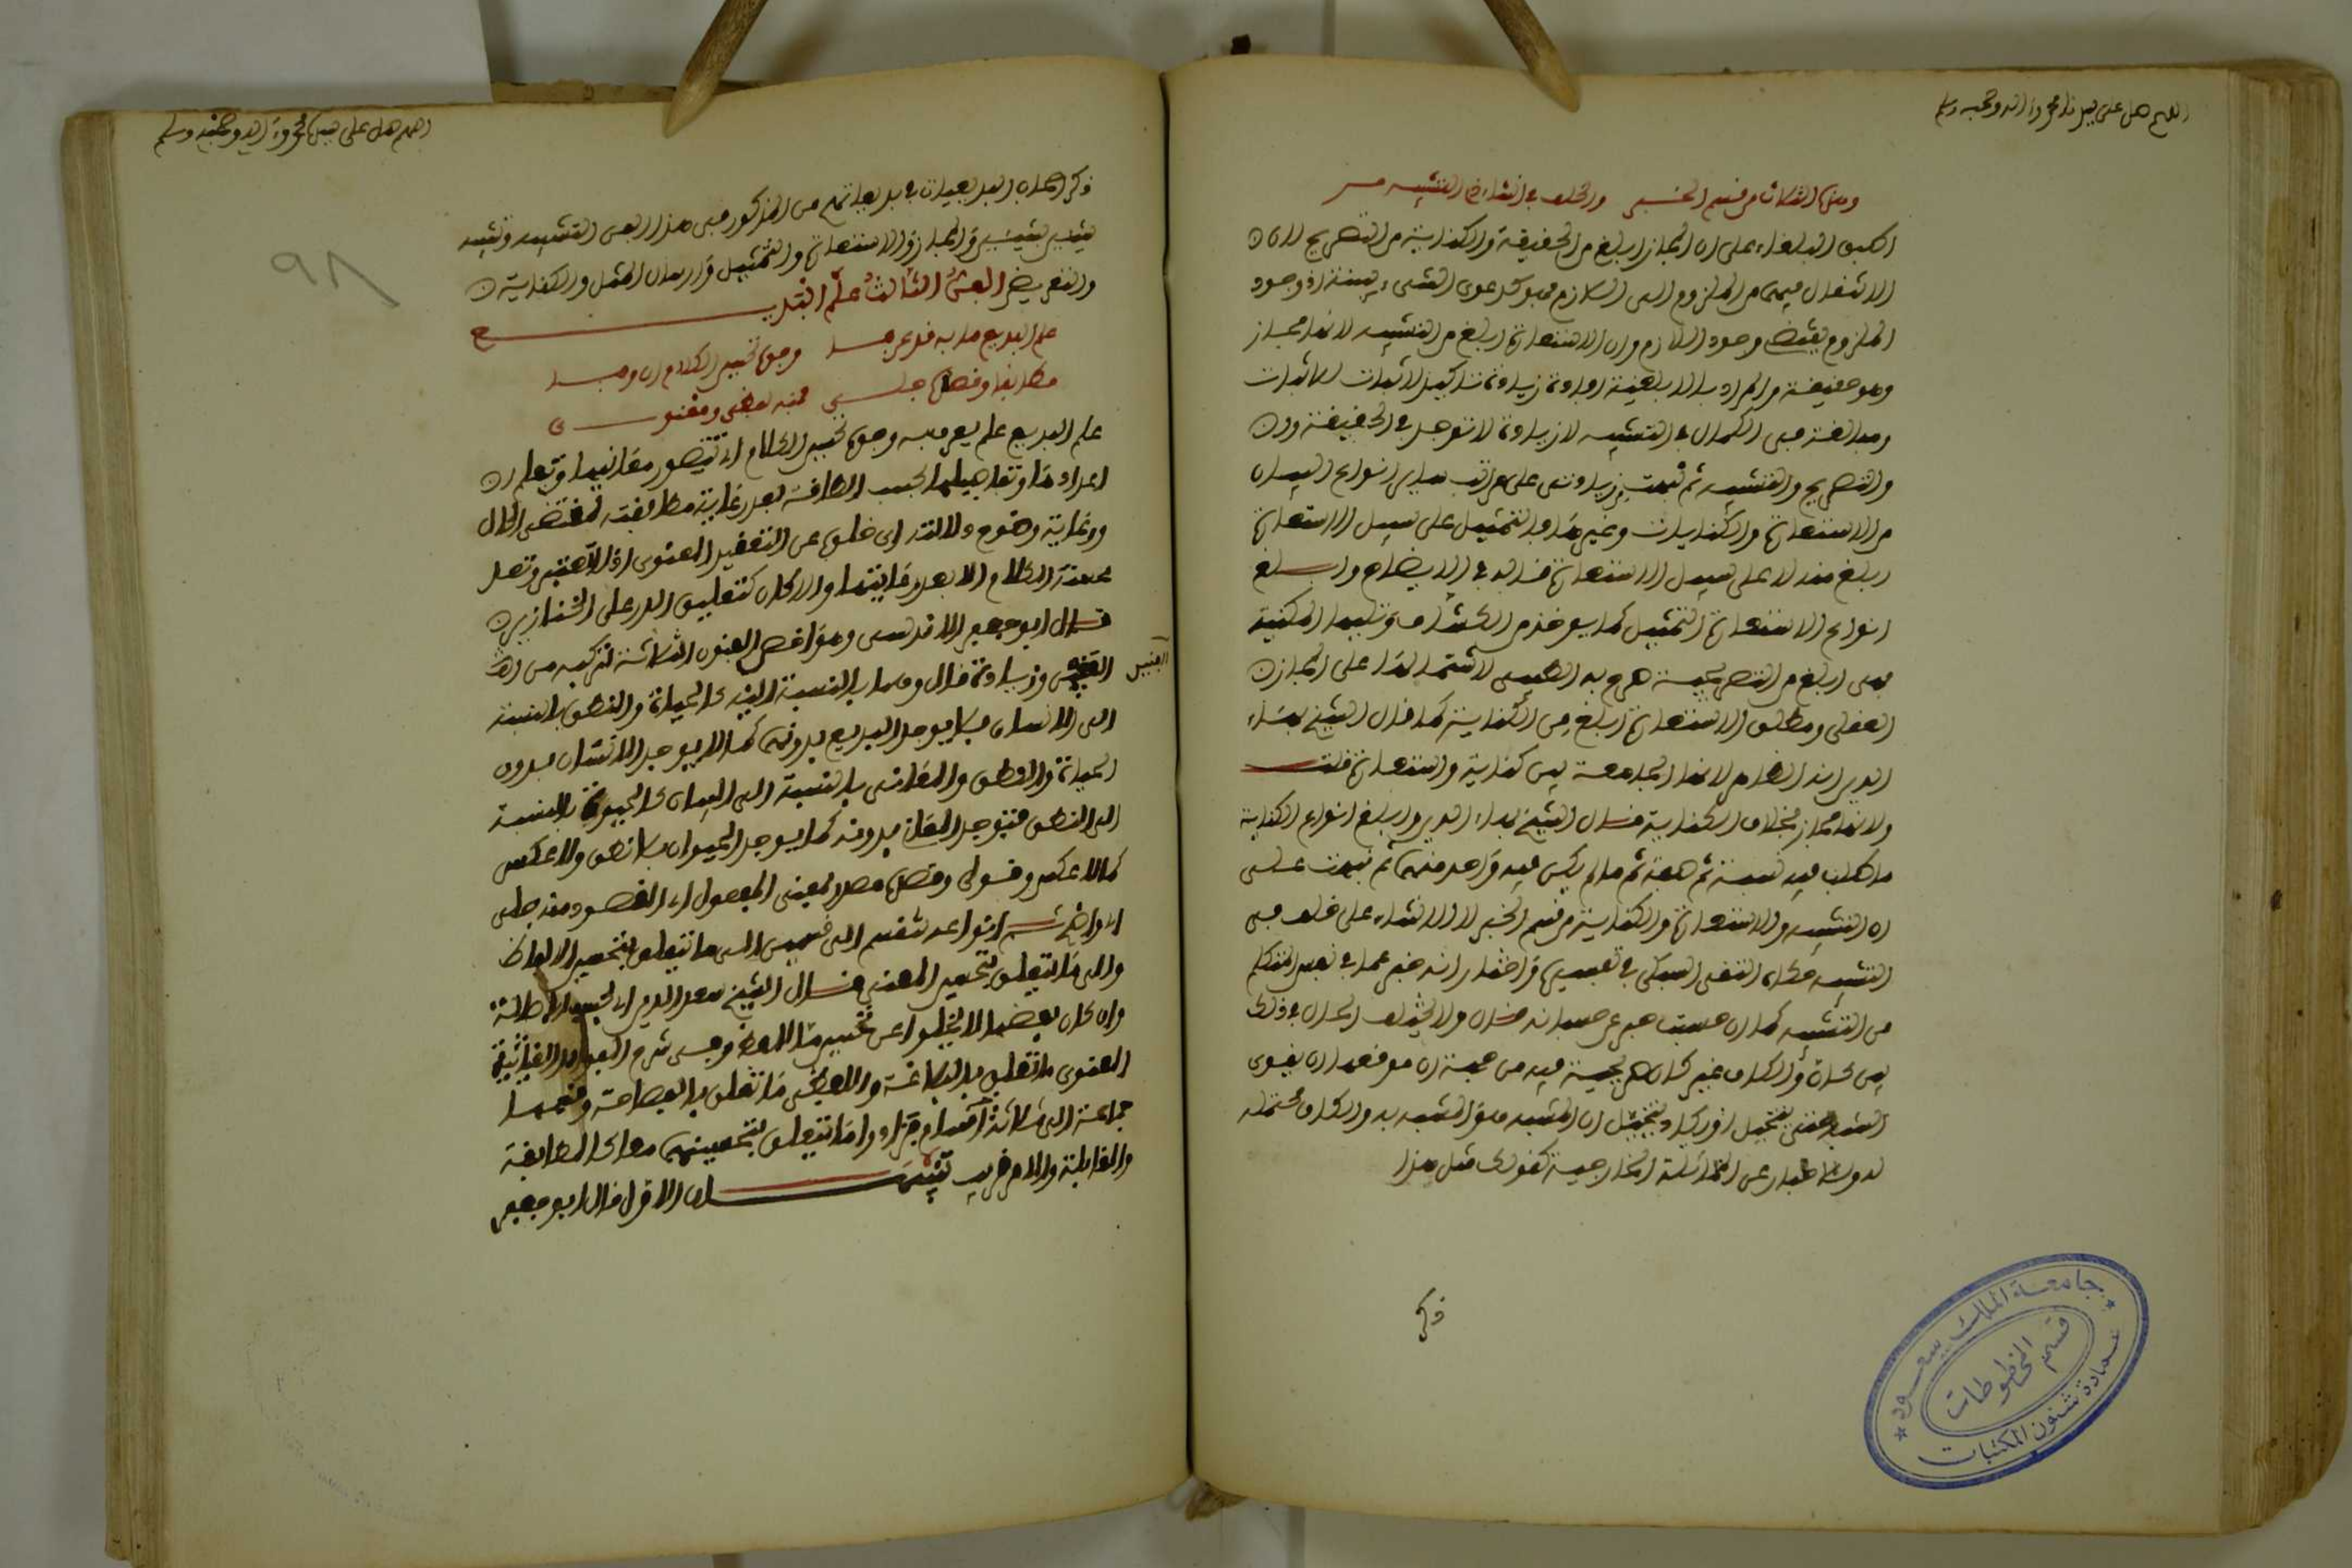 اللهم صل على سيدنا محمد وآله وصحبه وسلم
وهذه الثلاث من قسم الخبر والخلف في إنشاء ذا التشبيه مر
أطبق البلغاء على أن المجاز أبلغ من الحقيقة والكناية من التصريح لأن
الانتقال فيهما من الملزوم إلى اللازم فهو كدعوى الشيء ببينة إذ وجود
الملزوم يقتضي وجود اللازم وأن الاستعارة أبلغ من التشبيه لأنها مجاز
وهو حقيقة والمراد بالأبلغية إفادة زيادة تأكيد لإثبات
ومبالغة في الكمال في التشبيه لا زيادة لا توجد في الحقيقة ودن
والتصريح والتشبيه ثم نبهت بزيادتي على مراتب سائر أنواع البيان
من الاستعارة والكنايات وغيرها فالتمثيل على سبيل الاستعارة
أبلغ منه لا على سبيل الاستعارة قاله في الإيضاح وأبلغ
أنواع الاستعارة التمثيل كما يؤخذ من الكشاف وتليها المكنية
فهي أبلغ من التصريحية صرح به الطيبي لاشتمالها على المجاز
العقلي ومطلق الاستعارة أبلغ من الكناية كما قال الشيخ بهاء
الدين إنه الظاهر لأنها الجامعة بين كناية واستعارة قلت
ولأنها مجاز بخلاف الكناية قال الشيخ بهاء الدين وأبلغ أنواع الكناية
ما طلب فيه نسبة ثم صفة ثم ما لم يكن فيه واحد منهما ثم نبهت على
أن التشبيه والاستعارة والكناية من قسم الخبر لا الإنشاء على خلف في
التشبيه حكاه التقي السبكي في تفسيره واختار أنه خبر عما في نفس المتكلم
من التشبيه كما أن حسبت خبر عن حسبانه قال ولا يختلف الحال في ذلك
بين كأن والكاف غير كان صريحية فيه من جهة أن موقعها أن يقوى
الشبه حتى يتخيل أو يكاد يتخيل أن المشبه هو المشبه به والكاف محتملة
له وللإخبار عن المماثلة الخارجية كقولك مثل هذا
ذكر
جامعة الملك سعود
قسم المخطوطات
عمادة شئون المكتبات
اللهم صل على سيدنا محمد وآله وصحبه وسلم
٩٨
ذكر أصحاب البديعيات في بديعياتهم من المذكور في هذا الفن التشبيه وتشبيه
شيئين بشيئين والمجاز والاستعارة والتمثيل وإرسال المثل والكناية
والتعريض الفن الثالث علم البديع
علم البديع ما به قد عرفا وجوه تحسين الكلام إن وفا
مطابقا وقصده جلي فمنه لفظي ومعنوي
علم البديع علم يعرف به وجوه تحسين الكلام أي تتصور معانيها وتعلم
أعدادها وتفاصيلها بحسب الطاقة بعد رعاية مطابقته لمقتضى الحال
ورعاية وضوح دلالته أي خلوه عن التعقيد المعنوي إذ لا تعتبر وتعد
محسنة الكلام إلا بعد رعايتهما وإلا كان كتعليق الدر على الخنازير
قال أبو جعفر الأندلسي وهو أخص الفنون الثلاثة لتركبه من
الفنين وزيادة قال وهما بالنسبة إليه كالحياة والنطق بالنسبة
الفنين
إلى الإنسان فلا يوجد البديع بدونهما كما لا يوجد الإنسان بدون
الحياة والنطق والمعاني بالنسبة إلى البيان كالحيوة بالنسبة
إلى النطق فتوجد المعاني بدونه كما يوجد الحيوان بلا نطق ولا عكس
كما لا عكس وقولي وقصده مصدر بمعنى المفعول أي المقصود منه جلي
أي واضح ثم أنواعه تنقسم إلى قسمين إلى ما يتعلق بتحسين الألفاظ
وإلى ما يتعلق بتحسين المعنى قال الشيخ سعد الدين أي بحسب الأصالة
وإن كان بعضها لا يخلو عن تحسين ما للفظ وفي شرح الفوائد الغياثية
المعنوي ما تعلق بالبلاغة واللفظي ما تعلق بالفصاحة وقسمها
جماعة إلى ثلاثة أقسام فزادوا ما يتعلق بتحسينهما معا كالمطابقة
والمقابلة والأمر قريب تنبيهان الأول قال أبو جعفر